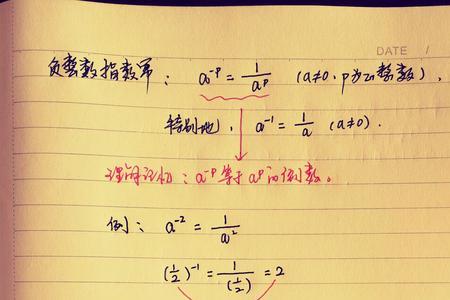 DATE /
负整数指数幂：a⁻ᵖ = 1/aᵖ （a≠0，p为正整数），
特别地，a⁻¹ = 1/a （a≠0）.
理解记忆：a⁻ᵖ等于aᵖ的倒数。
例：a⁻² = 1/a²
(1/2)⁻¹ = 1/(1/2) = 2